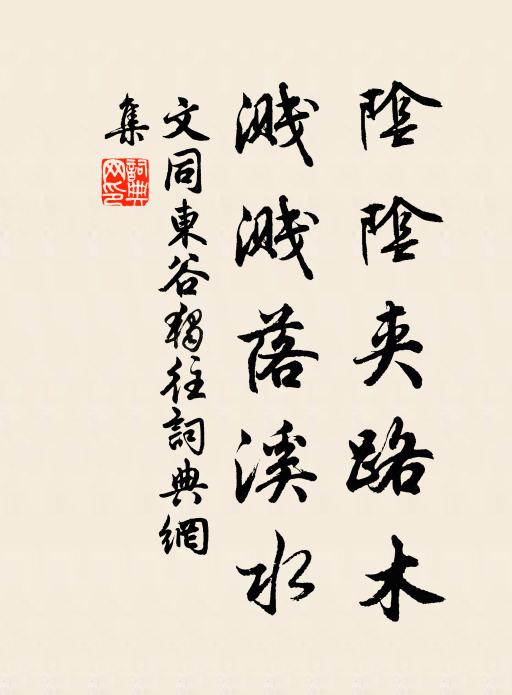 陰陰夾路木
濺濺落溪水
文同東谷獨往詞典網
集
詞典
网印